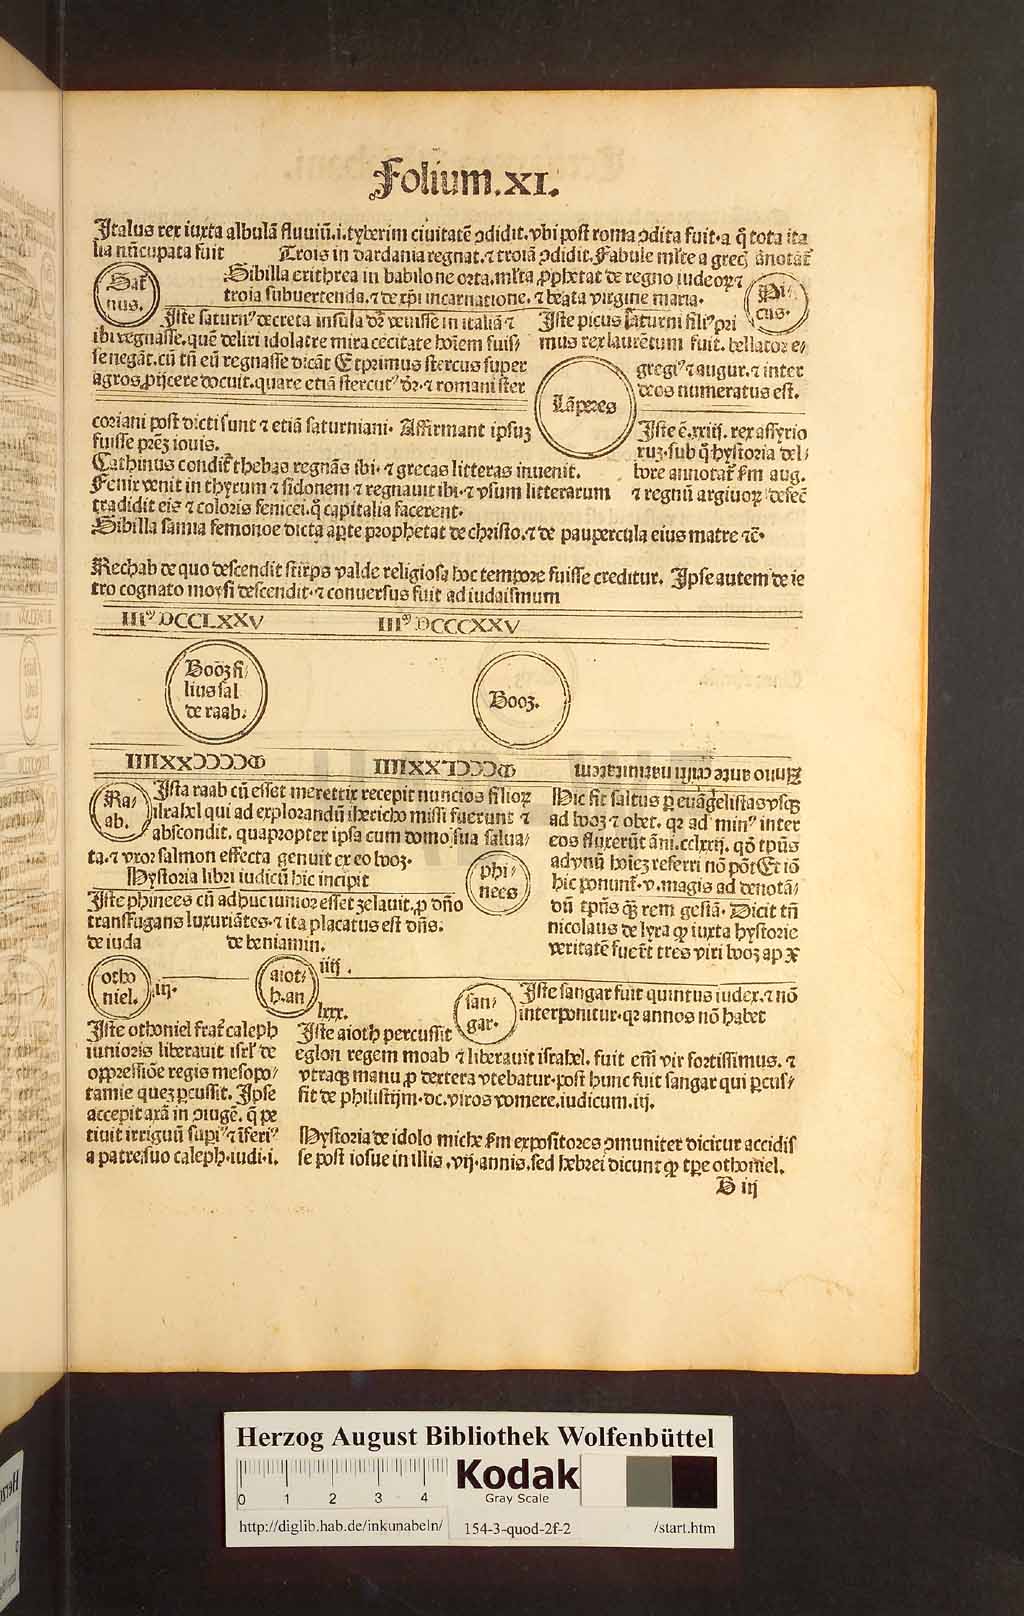 Folium.XI.
Italus rex iuxta albulã fluuiũ.i.tyberim ciuitatẽ ↄdidit.vbi post roma ↄdita fuit.a q̃ tota ita
lia nũcupata fuit Trois in dardania regnat.⁊ troiã ↄdidit.Fabule ml̃te a grec̨ ãnotat᷑
Sibilla erithrea in babilone orta.ml̃ta ꝓphetat de regno iudeoꝝ ⁊
troia subuertenda.⁊ de xp̃i incarnatione.⁊ beata virgine maria.
Sat᷑
nus.
Pi⸗
cus.
Iste saturnꝰ decreta insula dr̃ venisse in italiã ⁊
ibi regnasse.quẽ deliri idolatre mira cecitate hoĩem fuis⸗
se negãt.cũ tñ eũ regnasse dicãt Et primus stercus super
agros ꝓijcere docuit.quare etiã stercutꝰ dr̃.⁊ romani ster
Iste picus saturni filiꝰ pri
mus rex laurẽtum fuit.bellator e⸗
gregiꝰ ⁊ augur.⁊ inter
deos numeratus est.
Lãperes
coriani post dicti sunt ⁊ etiã saturniani. Affirmant ipsuʒ
fuisse prẽʒ iouis.
Cathinus condit᷑ thebas regnãs ibi.⁊ grecas litteras inuenit.
Fenix venit in thyrum ⁊ sidonem ⁊ regnauit ibi.⁊ vsum litterarum
tradidit eis ⁊ coloris fenicei.q̃ capitalia facerent.
Sibilla samia femonoe dicta aꝑte prophetat de christo.⁊ de paupercula eius matre ⁊c̃.
Iste ẽ.xxiij.rex assyrio
ruʒ.sub q̃ hystoria del⸗
bore annotat᷑ ẜm aug.
⁊ regnũ argiuoꝝ defec̃
Rechab de quo descendit stirps valde religiosa hoc tempore fuisse creditur. Ipse autem de ie
tro cognato moysi descendit.⁊ conuersus fuit ad iudaismum
IIIꝰ DCCLXXV IIIꝰ DCCCXXV
Booʒ fi⸗
lius sal
de raab.
Booʒ.
MCCCCXXIIII MCCCLXXIIII Anno ante cristi natiuitatem
Ra⸗
ab.
Ista raab cũ esset meretrix recepit nuncios filioꝝ
israhel qui ad explorandũ ihericho missi fuerunt ⁊
abscondit. quapropter ipsa cum domo sua salua⸗
ta.⁊ vxor salmon effecta genuit ex eo booʒ.
Hystoria libri iudicũ hic incipit
phi⸗
nees
Iste phinees cũ adhuc iunior esset ʒelauit.ꝓ dño
transffugans luxuriãtes.⁊ ita placatus est dñs.
de iuda de beniamin.
Hic fit saltus ꝑ euãgelistas vsqꝫ
ad booʒ ⁊ obet. qꝛ ad minꝰ inter
eos fluxerũt ãni.cclxxij. qõ tp̃us
ad vnũ hoĩeʒ referri nõ põt Et iõ
hic ponunt᷑.v.magis ad denotã⸗
dũ tp̃us qꝫ rem gestã. Dicit tñ
nicolaus de lyra ꝙ iuxta hystorie
veritatẽ fuer̃t tres viri booʒ ap x
otho
niel.
.ij.
aiot⸗
h.an
iiij.
lxxx.
san⸗
gar.
Iste sangar fuit quintus iudex.⁊ nõ
interponitur.qꝛ annos nõ habet
Iste othoniel frat᷑ caleph
iunioris liberauit isrl̃ de
oppressiõe regis mesopo⸗
tamie queʒ ꝑcussit. Ipse
accepit axã in ↄiugẽ. q̃ pe
tiuit irriguũ supiꝰ ⁊ ĩferiꝰ
a patre suo caleph.iudi.i.
Iste aioth percussit
eglon regem moab ⁊ liberauit israhel. fuit em̃ vir fortissimus. ⁊
vtraqꝫ manu ꝓ dextera vtebatur.post hunc fuit sangar qui ꝑcus⸗
sit de philistijm.dc.viros vomere.iudicum.iij.
Hystoria de idolo miche ẜm expositores ↄmuniter dicitur accidis
se post iosue in illis.vij.annis.sed hebrei dicunt ꝙ tꝑe othoniel.
B iij
Herzog August Bibliothek Wolfenbüttel
0 1 2 3 4
Kodak
Gray Scale
http://diglib.hab.de/inkunabeln/ 154-3-quod-2f-2 /start.htm